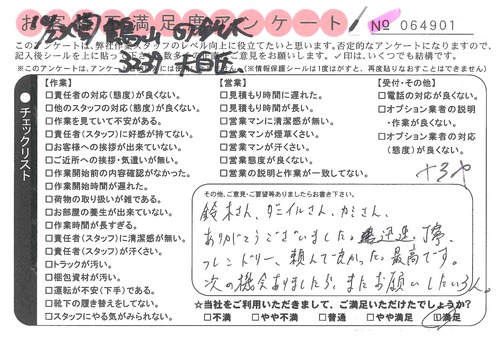 お客様不満足度アンケート
№ 064901
このアンケートは、弊社作業スタッフのレベル向上に役立てたいと思います。否定的なアンケートになりますので、
記入後シールを上に貼って
ご意見をお願いします。✓印は、いくつでも結構です。
チェックリスト
【作業】
□責任者の対応(態度)が良くない。
□他のスタッフの対応(態度)が良くない。
□作業を見ていて不安がある。
□責任者(スタッフ)に好感が持てない。
□お客様への挨拶が出来ていない。
□ご近所への挨拶・気遣いが無い。
□作業開始前の内容確認がなかった。
□作業開始時間が遅れた。
□荷物の取り扱いが雑である。
□お部屋の養生が出来ていない。
□作業時間が長すぎる。
□責任者(スタッフ)に清潔感が無い。
□責任者(スタッフ)が汗くさい。
□トラックが汚い。
□梱包資材が汚い。
□運転が不安(下手)である。
□靴下の履き替えをしてない。
□スタッフにやる気がみられない。
【営業】
□見積もり時間に遅れた。
□見積もり時間が長い。
□営業マンに清潔感が無い。
□営業マンが煙草くさい。
□営業マンが汗くさい。
□営業態度が良くない。
□営業の説明と作業が一致してない。
【受付・その他】
□電話の対応が良くない。
□オプション業者の説明
・作業が良くない。
□オプション業者の対応
(態度)が良くない。
その他、ご意見・ご要望等ありましたらお書き下さい。
鈴木さん、ダニイルさん、カミさん、
ありがとうございました。迅速、丁寧、
フレンドリー、頼んで良かった。最高です。
次の機会ありましたら、またお願いしたいです。
☆当社をご利用いただきまして、ご満足いただけたでしょうか?
□不満 □やや不満 □普通 □やや満足 □満足